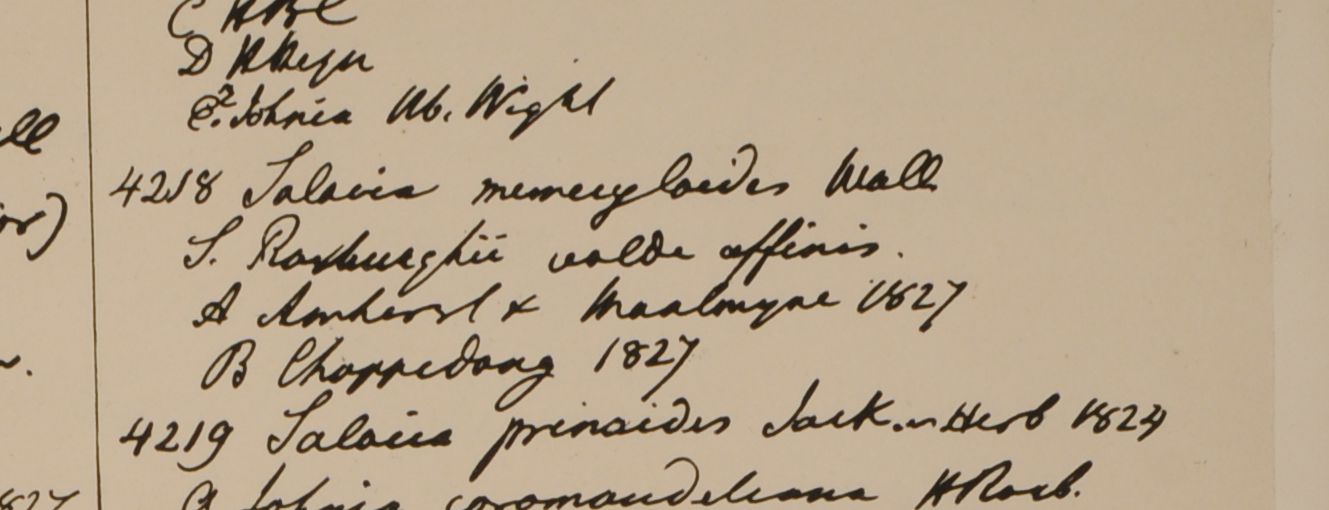 C HBC
D H Heyn
E? Johnia Hb. Wight
4218 Salacia memecyloides Wall
S. Roxburghii valde affinis.
A Amherst & Moalmyne 1827
B Choppedong 1827
4219 Salacia prinoides Jack in Herb 1824
a Johnia coromandeliana HRoxb.
ll
or)
1827